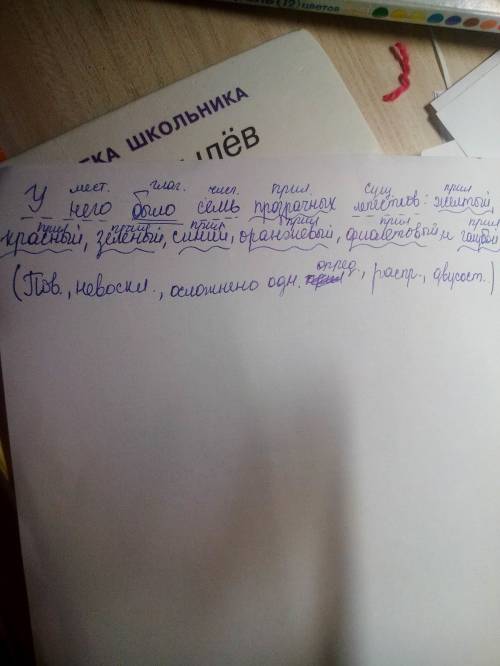 цветов
ТКА ШКОЛЬНИКА
ылёв
мест. глаг. числ. прил. сущ. прил.
У него было семь прозрачных лепестков: жёлтый,
прил прил прил прил прил прил
красный, зелёный, синий, оранжевый, фиолетовый и
(Пов., невоскл., осложнено одн. опред., распр., двусост.)